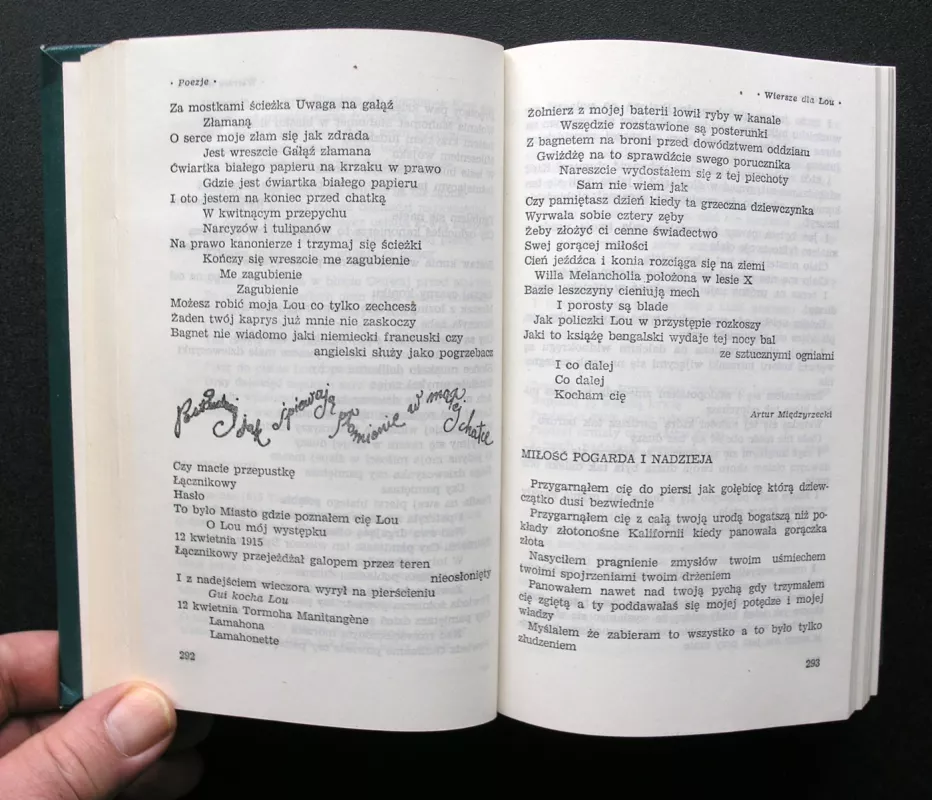 • Poezje •
Za mostkami ścieżka Uwaga na gałąź
Złamaną
O serce moje złam się jak zdrada
Jest wreszcie Gałąź złamana
Ćwiartka białego papieru na krzaku w prawo
Gdzie jest ćwiartka białego papieru
I oto jestem na koniec przed chatką
W kwitnącym przepychu
Narcyzów i tulipanów
Na prawo kanonierze i trzymaj się ścieżki
Kończy się wreszcie me zagubienie
Me zagubienie
Zagubienie
Możesz robić moja Lou co tylko zechcesz
Żaden twój kaprys już mnie nie zaskoczy
Bagnet nie wiadomo jaki niemiecki francuski czy
angielski służy jako pogrzebacz
jak śpiewają płomienie w mojej chatce
Czy macie przepustkę
Łącznikowy
Hasło
To było Miasto gdzie poznałem cię Lou
O Lou mój występku
12 kwietnia 1915
Łącznikowy przejeżdżał galopem przez teren
nieosłonięty
I z nadejściem wieczora wyrył na pierścieniu
Gui kocha Lou
12 kwietnia Tormoha Manitangène
Lamahona
Lamahonette
292
• Wiersze dla Lou •
Żołnierz z mojej baterii łowił ryby w kanale
Wszędzie rozstawione są posterunki
Z bagnetem na broni przed dowództwem oddziału
Gwiżdżę na to sprawdźcie swego porucznika
Nareszcie wydostałem się z tej piechoty
Sam nie wiem jak
Czy pamiętasz dzień kiedy ta grzeczna dziewczynka
Wyrwała sobie cztery zęby
Żeby złożyć ci cenne świadectwo
Swej gorącej miłości
Cień jeźdźca i konia rozciąga się na ziemi
Willa Melancholia położona w lesie X
Bazie leszczyny cieniują mech
I porosty są blade
Jak policzki Lou w przystępie rozkoszy
Jaki to książę bengalski wydaje tej nocy bal
ze sztucznymi ogniami
I co dalej
Co dalej
Kocham cię
Artur Międzyrzecki
MIŁOŚĆ POGARDA I NADZIEJA
Przygarnąłem cię do piersi jak gołębicę którą dziew-
czątko dusi bezwiednie
Przygarnąłem cię z całą twoją urodą bogatszą niż po-
kłady złotonośne Kalifornii kiedy panowała gorączka
złota
Nasyciłem pragnienie zmysłów twoim uśmiechem
twoimi spojrzeniami twoim drżeniem
Panowałem nawet nad twoją pychą gdy trzymałem
cię zgiętą a ty poddawałaś się mojej potędze i mojej
władzy
Myślałem że zabieram to wszystko a to było tylko
złudzeniem
293